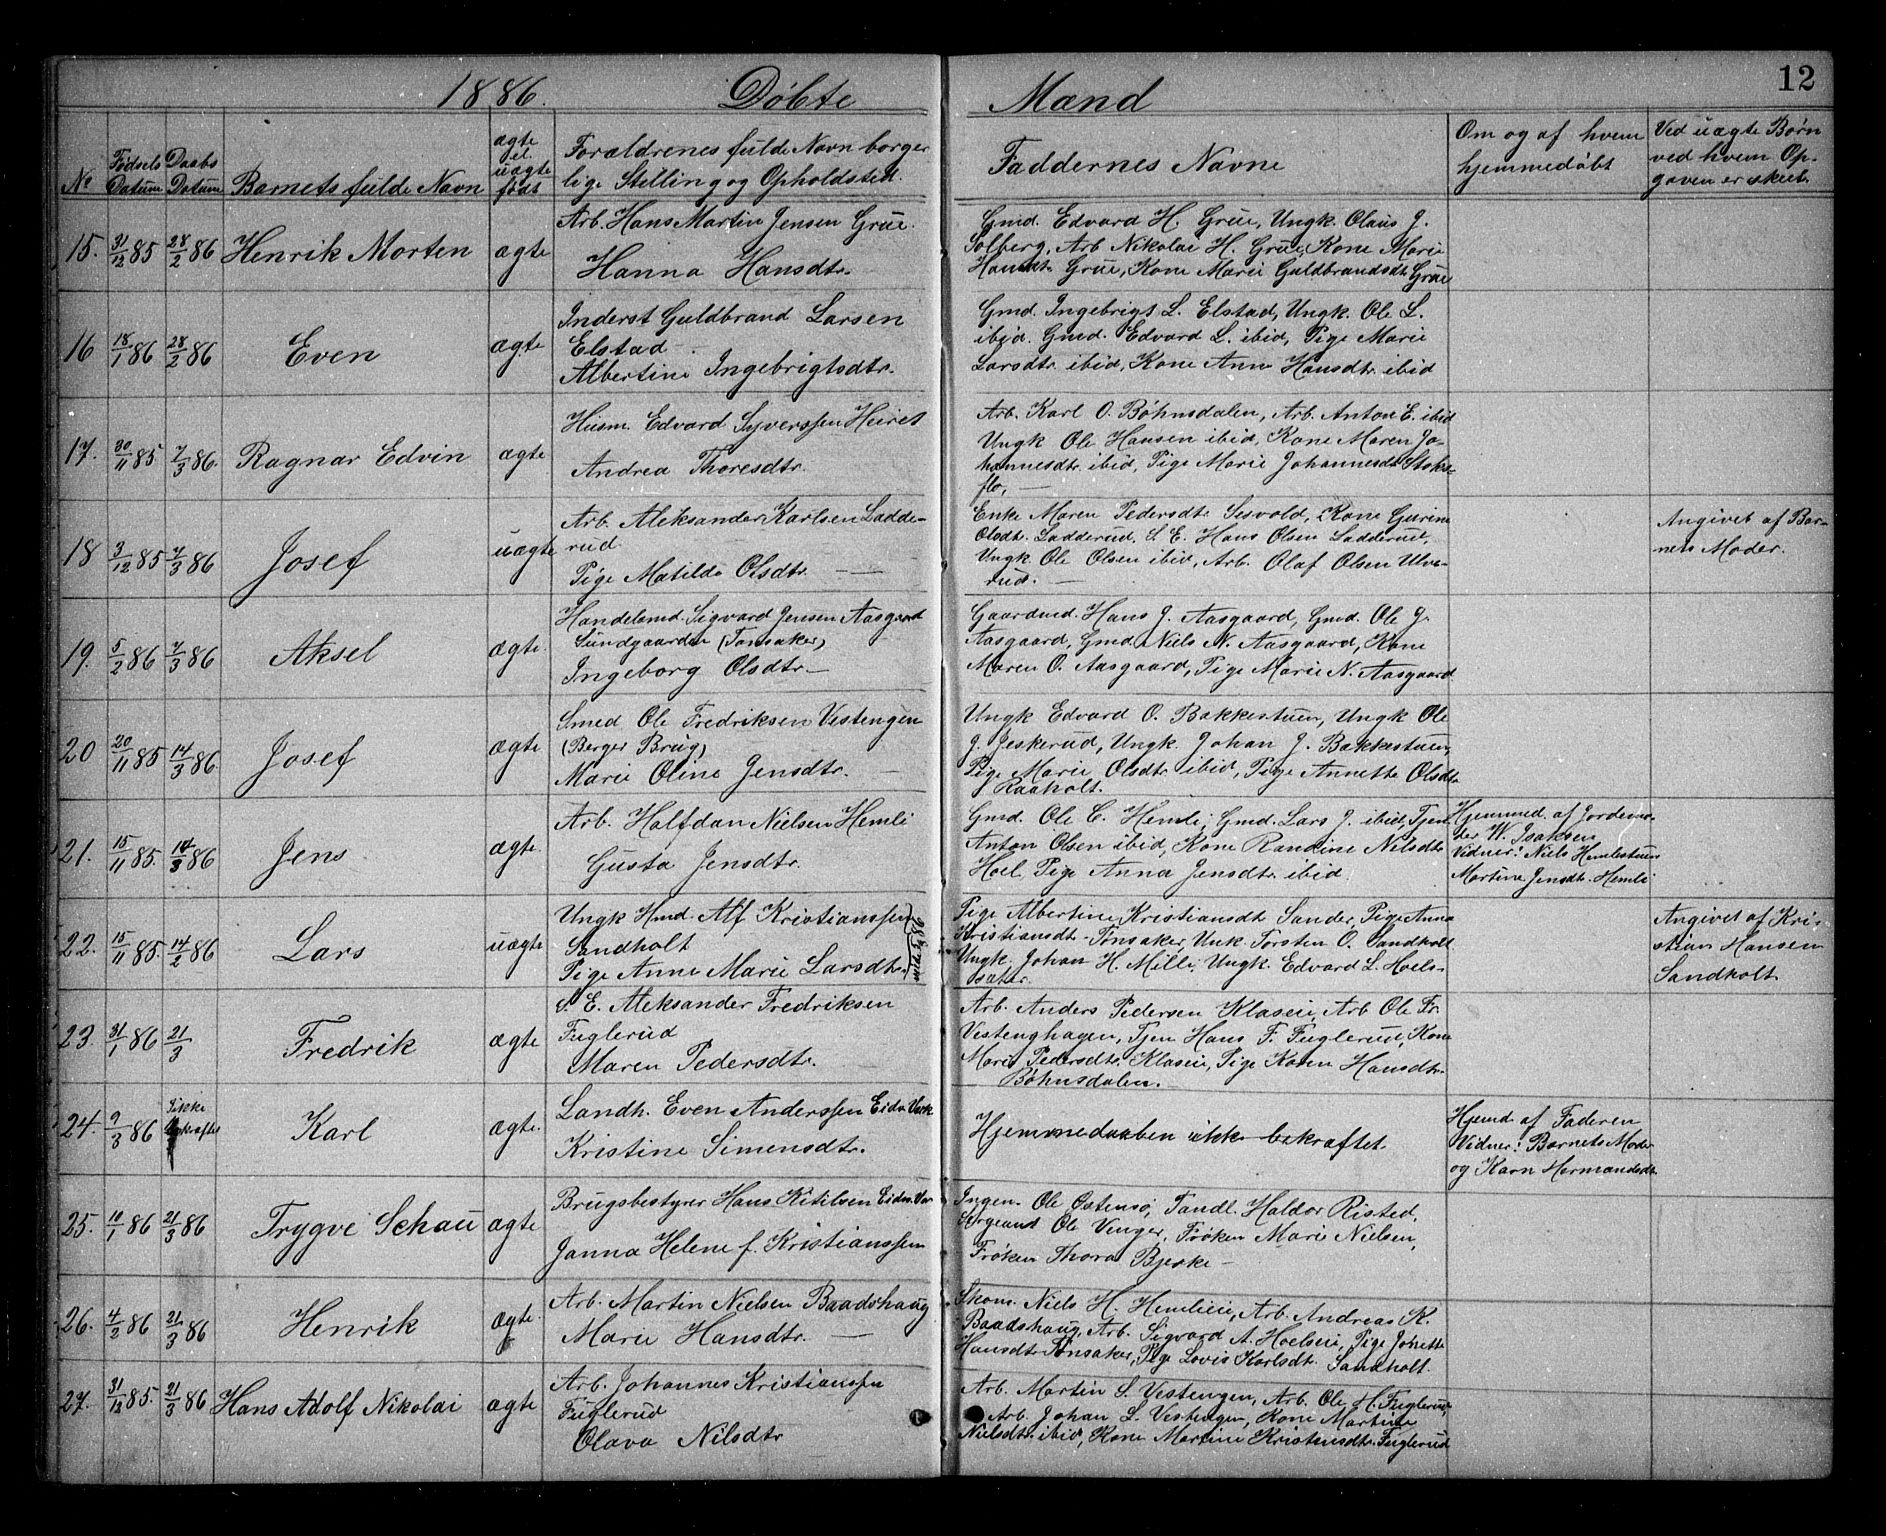 12
1886. Døbte Mænd
No
Fødsels Datum
Daabs Datum
Barnets fulde Navn
ægte el. uægte født
Forældrenes fulde Navn borger
lige Stilling og Opholdsted.
Faddernes Navne
Om og af hvem
hjemmedøbt
Ved uægte Børn
ved hvem Op-
gaven er skeet.
15. 31/12 85 28/2 86 Henrik Morten ægte
Arb. Hans Martin Jensen Grue.
Hanna Hansdtr.
Gmd. Edvard H. Grue, Ungk. Olaus J.
Solberg, Arb Nikolai H. Grue, Kone Marie
Hansdt. Grue, Kone Marie Guldbrandsdt. Grue
16 18/1 86 28/2 86 Even ægte
Inderst Guldbrand Larsen
Elstad
Albertine Ingebrigtsdtr.
Gmd. Ingebrigt L. Elstad, Ungk. Ole L.
ibid. Gmd. Edvard L. ibid, Pige Marie
Larsdtr. ibid, Kone Anne Hansdtr. ibid
17. 30/11 85 7/3 86. Ragnar Edvin ægte
Husm. Edvard Syverssen Heiret
Andrea Thoresdtr.
Arb. Karl O. Bøhnsdalen, Arb. Anton E. ibid
Ungk Ole Hansen ibid, Kone Maren Jo-
hannesdtr. ibid, Pige Marie Johannesdt. Stoks-
flo, —
18 3/12 85 7/3 86 Josef uægte
Arb. Aleksander Karlsen Ladde-
rud
Pige Matilde Olsdtr. — —
Enke Maren Pedersdt. Sesvold, Kone Gurine
Olsdt. Ladderud, S. E. Hans Olsen Ladderud,
Ungk Ole Olsen ibid, Arb. Olaf Olsen Ulve-
rud. —
Angivet af Bar-
nets Moder.
19. 5/2 86 7/3 86 Aksel ægte.
Handelsmd. Sigvard Jensen Aasgaard
Sundgaarden (Tønsaker)
Ingeborg Olsdtr. —
Gaardmd. Hans J. Aasgaard, Gmd. Ole J.
Aasgaard, Gmd. Niels N. Aasgaard, Kone
Maren O. Aasgaard, Pige Marie N. Aasgaard
20 20/11 85 14/3 86. Josef ægte
Smed Ole Fredriksen Vestengen
(Berger Brug)
Marie Oline Jensdtr. —
Ungk Edvard O. Bakkestuen, Ungk Ole
J. Jeskerud, Ungk. Johan J. Bakkestuen,
Pige Marie Olsdtr ibid, Pige Annette Olsdt
Raaholt.
21. 15/11 85. 14/3 86 Jens ægte.
Arb. Halfdan Nielsen Hemli
Gusta Jensdtr.
Gmd. Ole C. Hemli, Gmd. Lars J. ibid, Tjen.
Anton Olsen ibid, Kone Randine Nilsdtr.
Hoel, Pige Anna Jensdtr. ibid.
Hjemmed. af Jordemo-
der W. Isaksen
Vidner: Niels Hemlestuen
Martine Jensdtr. Hemli
22. 15/11 85. 14/2 86 Lars uægte
Ungk Hmd. Alf Kristianssen
Sandholt
Pige Anne Marie Larsdtr.
Pige Albertine Kristiansdt Sander, Pige Anna
Kristiansdt. Tønsaker, Unk. Torsten O. Sandholt
Ungk. Johan H. Milli, Ungk. Edvard L. Hoels-
saker.
Angivet af Kri-
stian Hansen
Sandholt.
23 31/1 86 21/3 Fredrik ægte
S. E. Aleksander Fredriksen
Fuglerud
Maren Pedersdtr.
Arb. Anders Pedersen Klaseie, Arb Ole Fr.
Vestenghagen, Tjen Hans F. Fuglerud, Kone
Marie Pedersdtr. Klaseie, Pige Karen Hansdtr.
Bøhnsdalen.
24. 9/3 86 ikke bekræftet Karl ægte.
Landh. Even Anderssen Eidsv. Værk
Kristine Simensdtr.
Hjemmedaaben ikke bekræftet.
Hjemd af Faderen
Vidner: Barnets Moder
og Karn Hermandsdt.
25. 10/1 86 21/3 86 Trygve Schau ægte
Brugsbestyrer Hans Ketilsen Eidsv. Vær
Janna Helene f. Kristianssen
Ingen. Ole Østensø, Tandl. Haldor Risted,
Sergeant Ole Venger, Frøken Marie Nielsen,
Frøken Thora Bjerke —
26. 4/2 86 21/3 86 Henrik ægte.
Arb. Martin Nielsen Baadshaug
Marie Hansdtr. —
Skom. Niels H. Hemlieie, Arb. Andreas K.
Baadshaug, Arb. Sigvard A. Hoelseie, Pige Jonette
Hansdtr Tønsaker, Pige Lovis Karlsdt. Sandholt.
27. 31/12 85. 21/3 86 Hans Adolf Nikolai ægte
Arb. Johannes Kristianssen
Fuglerud
Olava Nilsdtr
Arb. Martin S. Vestengen, Arb. Ole H. Fuglerud,
Arb. Johan L. Vestengen, Kone Martine
Nielsdtr. ibid, Kone Martine Kristensdtr. Fuglerud